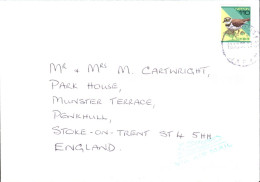 Mr + Mrs M. Cartwright,
Park House,
Munster Terrace,
Penkhull,
Stoke-on-Trent ST4 5HH
England.